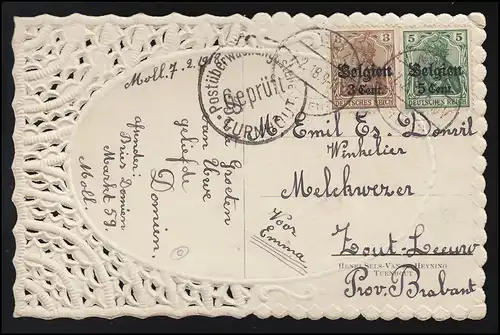 Moll. 7.2.
Groeten
van Uwe
geliefde
Domien.
Afzender:
Bries Domien
Markt 59.
Moll.
Postüberwachungsstelle
Geprüft
TURNHOUT
3 3
Belgien
3 Cent.
DEUTSCHES REICH
5 5
Belgien
5 Cent.
DEUTSCHES REICH
Mr Emil Es. Donvil
Winkelier
Melckwezer
Zout-Leeuw
Prov. Brabant
Voor
Emma
HENRI SELS-VAN HEYNING
TURNHOUT